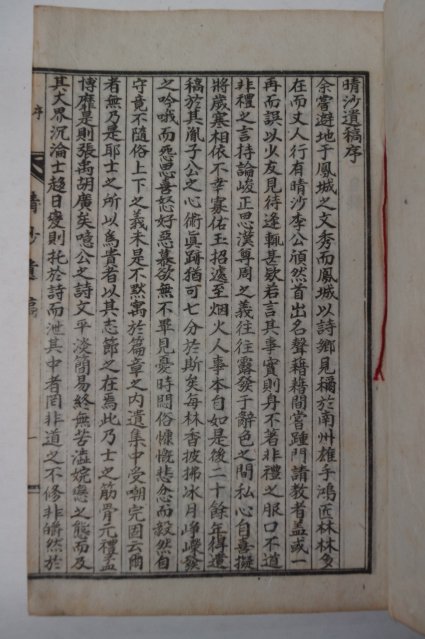 晴沙遺稿序
余嘗避地于鳳城之文秀而鳳城以詩鄉見稱於南州雄手鴻匠林林多
在而丈人行有晴沙李公頎然首出名聲藉藉間嘗踵門請教者蓋或一
再而誤以少友見待逢輒甚歡若言其事實則身不著非禮之服口不道
非禮之言持論峻正思漢尊周之義往往露發于辭色之間私心自喜擬
將歲寒相依不幸寡佑玉招遽至烟火人事本自如是後二十餘年得遺
稿於其胤子公之心術眞蹟猶可七分於斯矣每林香披拂水月崢嶸發
之吟哦而怨思喜怒好惡慕欲無不畢見憂時悶俗慷慨悲忿而毅然自
守竟不隨俗上下之義未是不默寓於篇章之內遺集中受嘲完固云爾
者無乃是耶士之所以爲貴者以其志節之在焉此乃士之筋骨元禮蓋
博靡是則張禹胡廣矣噫公之詩文平淡簡易終無苦澁婉戀之態而及
其大界沉淪士趍日變則托於詩而泄其中者罔非道之不修非皭然於
序
晴沙遺稿
一